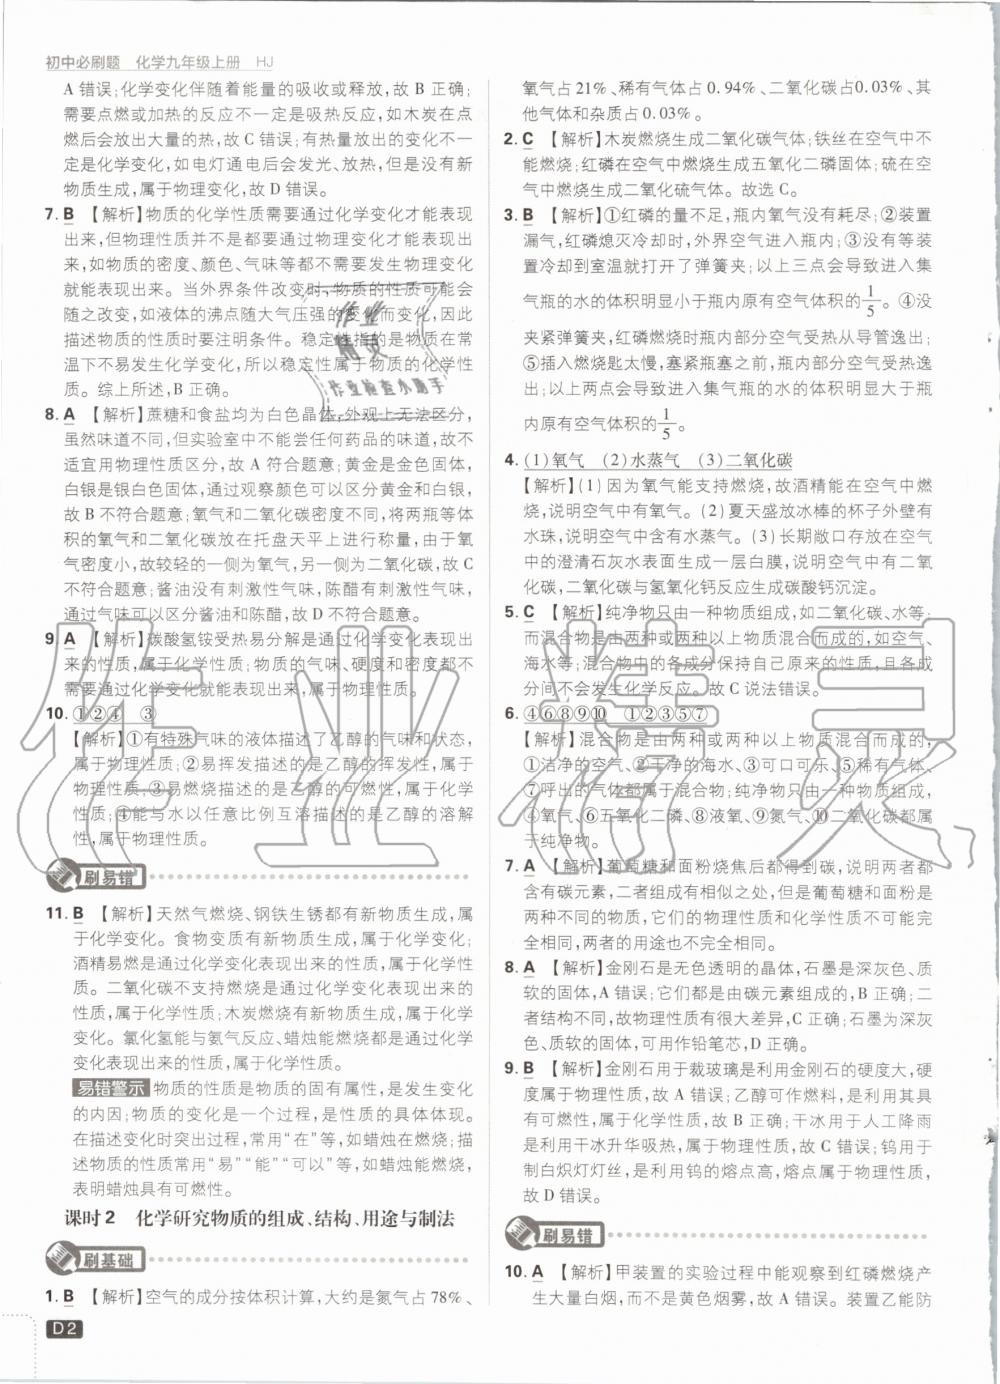 初中必刷题 化学九年级上册 HJ
A 错误;化学变化伴随着能量的吸收或释放,故 B 正确;
需要点燃或加热的反应不一定是吸热反应,如木炭在点
燃后会放出大量的热,故 C 错误;有热量放出的变化不一
定是化学变化,如电灯通电后会发光、放热,但是没有新
物质生成,属于物理变化,故 D 错误。
7. B 【解析】物质的化学性质需要通过化学变化才能表现
出来,但物理性质并不是都要通过物理变化才能表现出
来,如物质的密度、颜色、气味等都不需要发生物理变化
就能表现出来。当外界条件改变时,物质的性质可能会
随之改变,如液体的沸点随大气压强的变化而变化,因此
描述物质的性质时要注明条件。稳定性指的是物质在常
温下不易发生化学变化,所以稳定性属于物质的化学性
质。综上所述,B 正确。
8. A 【解析】蔗糖和食盐均为白色晶体,外观上无法区分,
虽然味道不同,但实验室中不能尝任何药品的味道,故不
适宜用物理性质区分,故 A 符合题意;黄金是金色固体,
白银是银白色固体,通过观察颜色可以区分黄金和白银,
故 B 不符合题意;氧气和二氧化碳密度不同,将两瓶等体
积的氧气和二氧化碳放在托盘天平上进行称量,由于氧
气密度小,故较轻的一侧为氧气,另一侧为二氧化碳,故 C
不符合题意;酱油没有刺激性气味,陈醋有刺激性气味,
通过气味可以区分酱油和陈醋,故 D 不符合题意。
9. A 【解析】碳酸氢铵受热易分解是通过化学变化表现出
来的性质,属于化学性质;物质的气味、硬度和密度都不
需要通过化学变化就能表现出来,属于物理性质。
10. ①②④ ③
【解析】①有特殊气味的液体描述了乙醇的气味和状态,
属于物理性质;②易挥发描述的是乙醇的挥发性,属于
物理性质;③易燃烧描述的是乙醇的可燃性,属于化学
性质;④能与水以任意比例互溶描述的是乙醇的溶解
性,属于物理性质。
刷易错
11. B 【解析】天然气燃烧、钢铁生锈都有新物质生成,属
于化学变化。食物变质有新物质生成,属于化学变化;
酒精易燃是通过化学变化表现出来的性质,属于化学性
质。二氧化碳不支持燃烧是通过化学变化表现出来的
性质,属于化学性质;木炭燃烧有新物质生成,属于化学
变化。氯化氢能与氨气反应、蜡烛能燃烧都是通过化学
变化表现出来的性质,属于化学性质。
易错警示 物质的性质是物质的固有属性,是发生变化
的内因;物质的变化是一个过程,是性质的具体体现。
在描述变化时突出过程,常用“在”等,如蜡烛在燃烧;描
述物质的性质常用“易”“能”“可以”等,如蜡烛能燃烧,
表明蜡烛具有可燃性。
课时2 化学研究物质的组成、结构、用途与制法
刷基础
1. B 【解析】空气的成分按体积计算,大约是氮气占 78%、
D2
氧气占 21%、稀有气体占 0.94%、二氧化碳占0.03%、其
他气体和杂质占 0.03%。
2. C 【解析】木炭燃烧生成二氧化碳气体;铁丝在空气中不
能燃烧;红磷在空气中燃烧生成五氧化二磷固体;硫在空
气中燃烧生成二氧化硫气体。故选 C。
3. B 【解析】①红磷的量不足,瓶内氧气没有耗尽;②装置
漏气,红磷熄灭冷却时,外界空气进入瓶内;③没有等装
置冷却到室温就打开了弹簧夹;以上三点会导致进入集
气瓶的水的体积明显小于瓶内原有空气体积的1/5。④没
夹紧弹簧夹,红磷燃烧时瓶内部分空气受热从导管逸出;
⑤插入燃烧匙太慢,塞紧瓶塞之前,瓶内部分空气受热逸
出;以上两点会导致进入集气瓶的水的体积明显大于瓶
内原有空气体积的1/5。
4. (1)氧气 (2)水蒸气 (3)二氧化碳
【解析】(1)因为氧气能支持燃烧,故酒精能在空气中燃
烧,说明空气中有氧气。(2)夏天盛放冰棒的杯子外壁有
水珠,说明空气中含有水蒸气。(3)长期敞口存放在空气
中的澄清石灰水表面生成一层白膜,说明空气中有二氧
化碳,二氧化碳与氢氧化钙反应生成碳酸钙沉淀。
5. C 【解析】纯净物只由一种物质组成,如二氧化碳、水等;
而混合物是由两种或两种以上物质混合而成的,如空气、
海水等;混合物中的各成分保持自己原来的性质,且各成
分间不会发生化学反应。故 C 说法错误。
6. ④⑥⑧⑨⑩ ①②③⑤⑦
【解析】混合物是由两种或两种以上物质混合而成的,
①洁净的空气、②干净的海水、③可口可乐、⑤稀有气体、
⑦呼出的气体都属于混合物;纯净物只由一种物质组成,
④氧气、⑥五氧化二磷、⑧液氧、⑨氮气、⑩二氧化碳都属
于纯净物。
7. A 【解析】葡萄糖和面粉烧焦后都得到碳,说明两者都
含有碳元素,二者组成有相似之处,但是葡萄糖和面粉是
两种不同的物质,它们的物理性质和化学性质不可能完
全相同,两者的用途也不完全相同。
8. A 【解析】金刚石是无色透明的晶体,石墨是深灰色、质
软的固体,A 错误;它们都是由碳元素组成的,B 正确;二
者结构不同,故物理性质有很大差异,C 正确;石墨为深灰
色、质软的固体,可用作铅笔芯,D 正确。
9. B 【解析】金刚石用于裁玻璃是利用金刚石的硬度大,硬
度属于物理性质,故 A 错误;乙醇可作燃料,是利用其具
有可燃性,属于化学性质,故 B 正确;干冰用于人工降雨
是利用干冰升华吸热,属于物理性质,故 C 错误;钨用于
制白炽灯灯丝,是利用钨的熔点高,熔点属于物理性质,
故 D 错误。
刷易错
10. A 【解析】甲装置的实验过程中能观察到红磷燃烧产
生大量白烟,而不是黄色烟雾,故 A 错误。装置乙能防
作业精灵
作业
精灵
作业检查小助手